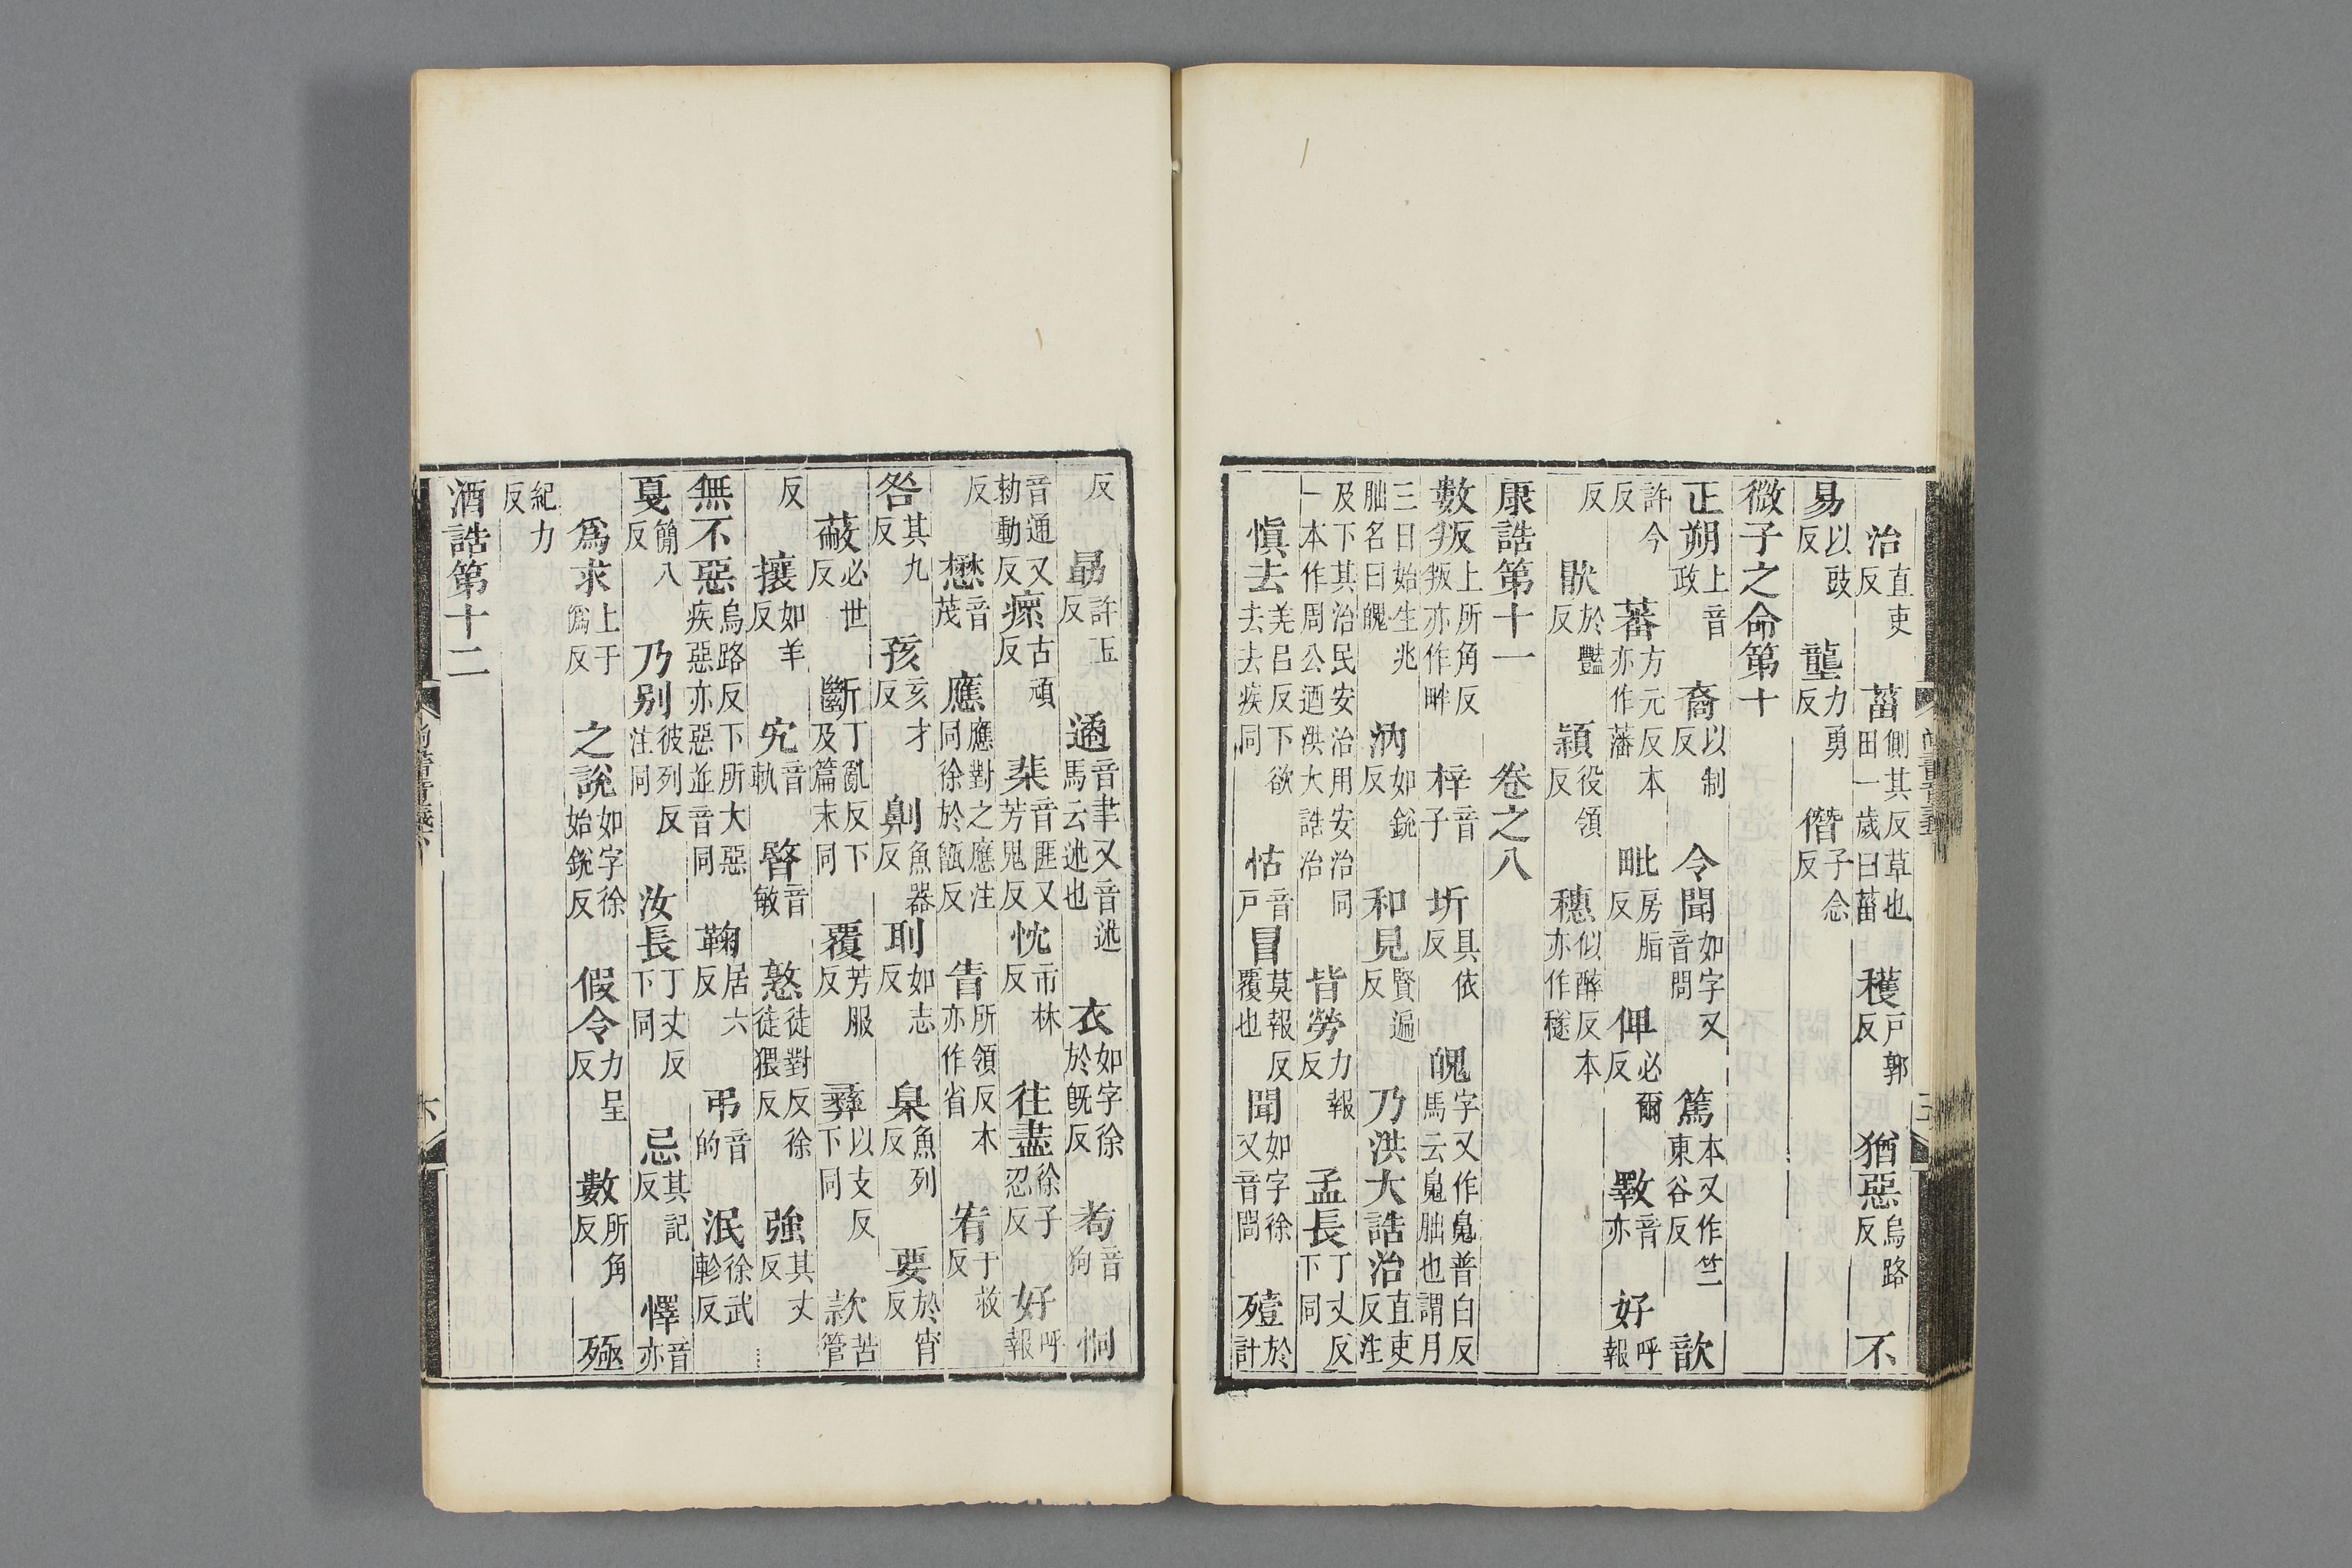 治直吏反 菑側其反草也田一歲曰菑 穫戸郭反 猶惡烏路反 不
易以豉反 壟力勇反 僭子念反
微子之命第十
正朔上音政 裔以制反 令聞如字又音問 篤本又作竺東谷反 歆
許今反 蕃方元反本亦作藩 毗房脂反 俾必爾反 斁音亦 好呼報
反 猒於豔反 穎役領反 穗似醉反本亦作穟
康誥第十一 卷之八
數叛上所角反叛亦作畔 梓音子 圻具依反 魄字又作䰟普白反馬云䰟朏也謂月
三日始生兆朏名曰魄 汭如銳反 和見賢遍反 乃洪大誥治直吏反注
及下其治民安治用安治同一本作周公迺洪大誥治 皆勞力報反 孟長丁丈反下同
愼去羌呂反下欲去去疾同 怙音戸 冒莫報反覆也 聞如字徐又音問 殪於計
反 勗許玉反 遹音聿又音述馬云述也 衣如字徐於旣反 耇音狗 恫
音通又勑動反 瘝古頑反 棐音匪又芳鬼反 忱市林反 往盡徐子忍反 好呼報
反 懋音茂 應應對之應注同徐於甑反 眚所領反本亦作省 宥于救反
咎其九反 孩亥才反 劓魚器反 刵如志反 臬魚列反 要於宵反
蔽必世反 斷丁亂反下及篇末同 覆芳服反 彝以支反下同 款苦管
反 攘如羊反 宄音軌 暋音敏 憝徒對反徐徒猥反 強其丈反
無不惡烏路反下所大惡疾惡亦惡並音同 鞠居六反 弔音的 泯徐武軫反
戛簡八反 乃别彼列反注同 汝長丁丈反下同 忌其記反 懌音亦
爲求上于僞反 之說如字徐始銳反 假令力呈反 數所角反 殛
紀力反
酒誥第十二